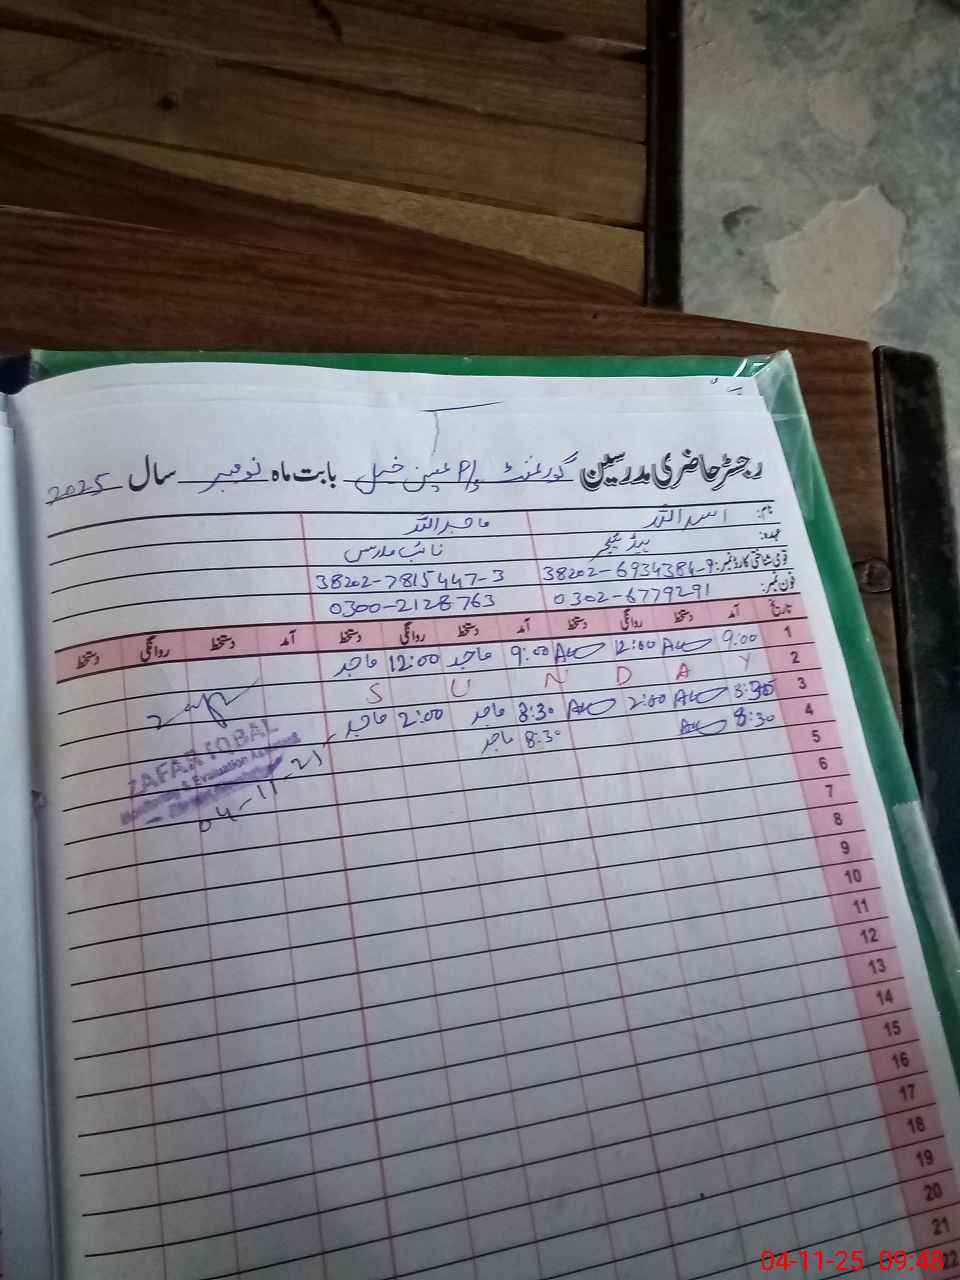 رجسٹر حاضری مدرسین گورنمنٹ P/S عیسیٰ خیل بابت ماہ نومبر سال 2025
نام: اسد اللہ ماجد اللہ
عہدہ: ہیڈ ٹیچر نائب مدرس
قومی شناختی کارڈ نمبر: 38202-6934384-9 38202-7815447-3
فون نمبر: 0302-6779291 0300-2128763
تاریخ آمد دستخط روانگی دستخط آمد دستخط روانگی دستخط آمد دستخط روانگی دستخط
1 9:00 12:00 9:00 ماجد 12:00 ماجد
2 S U N D A Y
3 8:30 2:00 8:30 ماجد 2:00 ماجد
4 8:30 8:30 ماجد
5
6
7
8
9
10
11
12
13
14
15
16
17
18
19
20
21
22
ZAFAR IQBAL
Monitoring & Evaluation Assistant
04-11-21
04-11-25 09:48